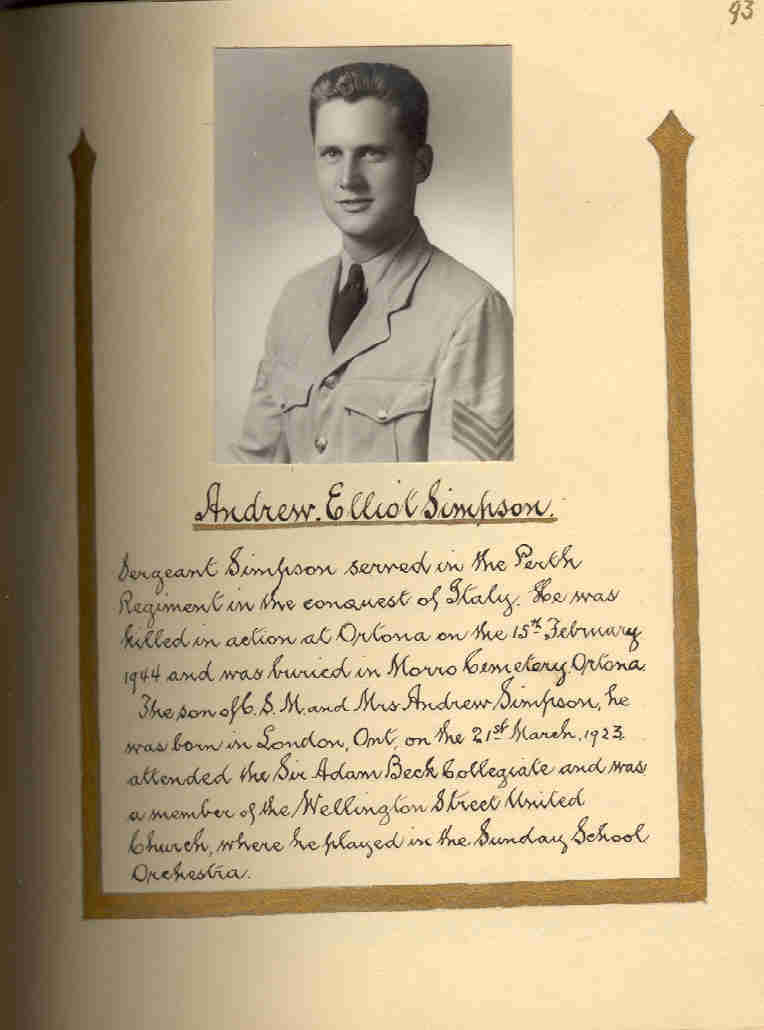 93
Andrew. Elliot Simpson.
Sergeant Simpson served in the Perth
Regiment in the conquest of Italy. He was
killed in action at Ortona on the 15th February
1944 and was buried in Morro Cemetery, Ortona
The son of C. S. M. and Mrs Andrew Simpson, he
was born in London, Ont, on the 21st March, 1923.
attended the Sir Adam Beck Collegiate and was
a member of the Wellington Street United
Church, where he played in the Sunday School
Orchestra.